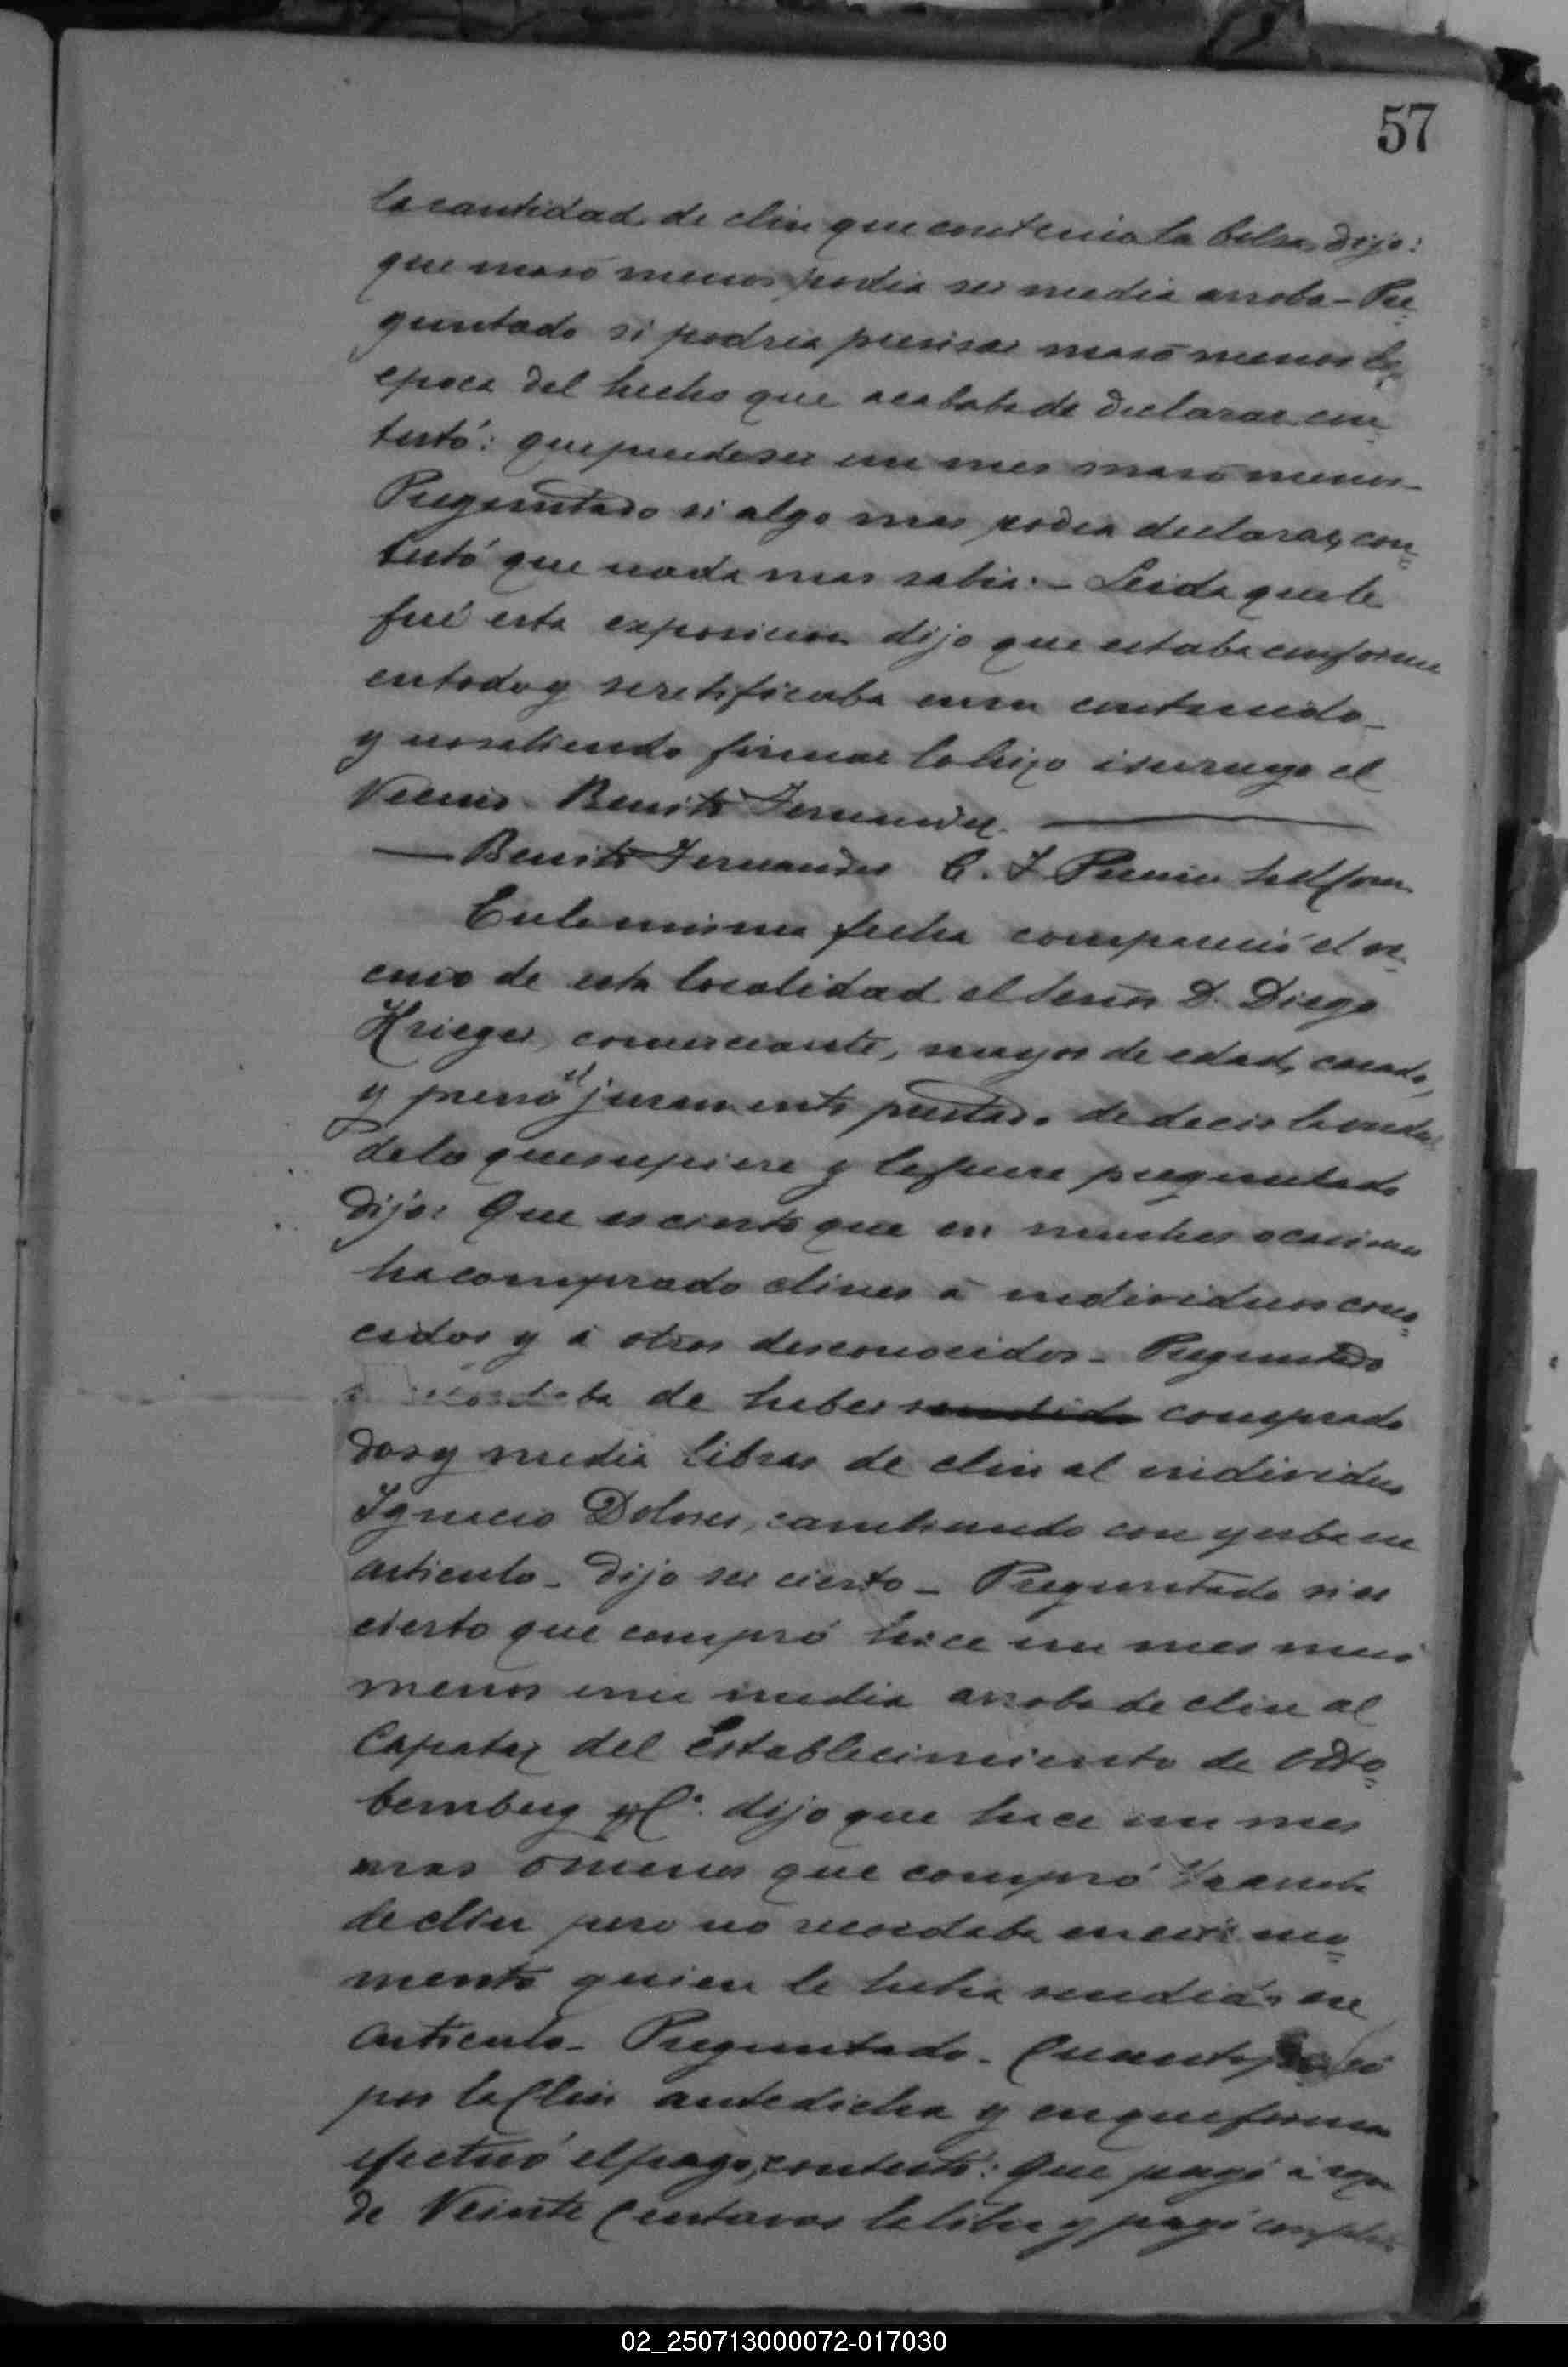 57
la cantidad de clin que contenia la bolsa, dijo:
que mas ó menos podia ser media arroba - Pre=
guntado si podria precisar mas ó menos la
epoca del hecho que acababa de declarar con=
testó: que puede ser un mes mas ó menos -
Preguntado si algo mas podia declarar, con=
testó que nada mas sabia. - Leida que le
fué esta exposicion dijo que estaba conforme
en todo y se retificaba en su contenido -
y no sabiendo firmar lo hizo á su ruego el
Vecino Benito Fernandez.
— Benito Fernandez C. F.
En la misma fecha compareció el ve=
cino de esta localidad el Señor D. Diego
Krieger, comerciante, mayor de edad, casado,
y previo el juramento prestado de decir la verdad
de lo que supiere y le fuere preguntado
dijo: Que es cierto que en muchas ocasiones
ha comprado clines á individuos cono=
cidos y á otros desconocidos - Preguntado
si recordaba de haber vendido comprado
dos y media libras de clin al individuo
Ignacio Dolores, cambiando con yerba ese
articulo - Dijo ser cierto - Preguntado si es
cierto que compró hace un mes mas ó
menos una media arroba de clin al
Capataz del Establecimiento de Otto
bemberg y Cª. dijo que hace un mes
mas ó menos que compró ½ arroba
de clin pero no recordaba en ese mo=
mento quien le habia vendido ese
articulo - Preguntado - Cuanto pagó
por la Clin antedicha y en que forma
efectuó el pago, contestó: Que pagó á razon
de Veinte Centavos la libra y pagó
02_250713000072-017030